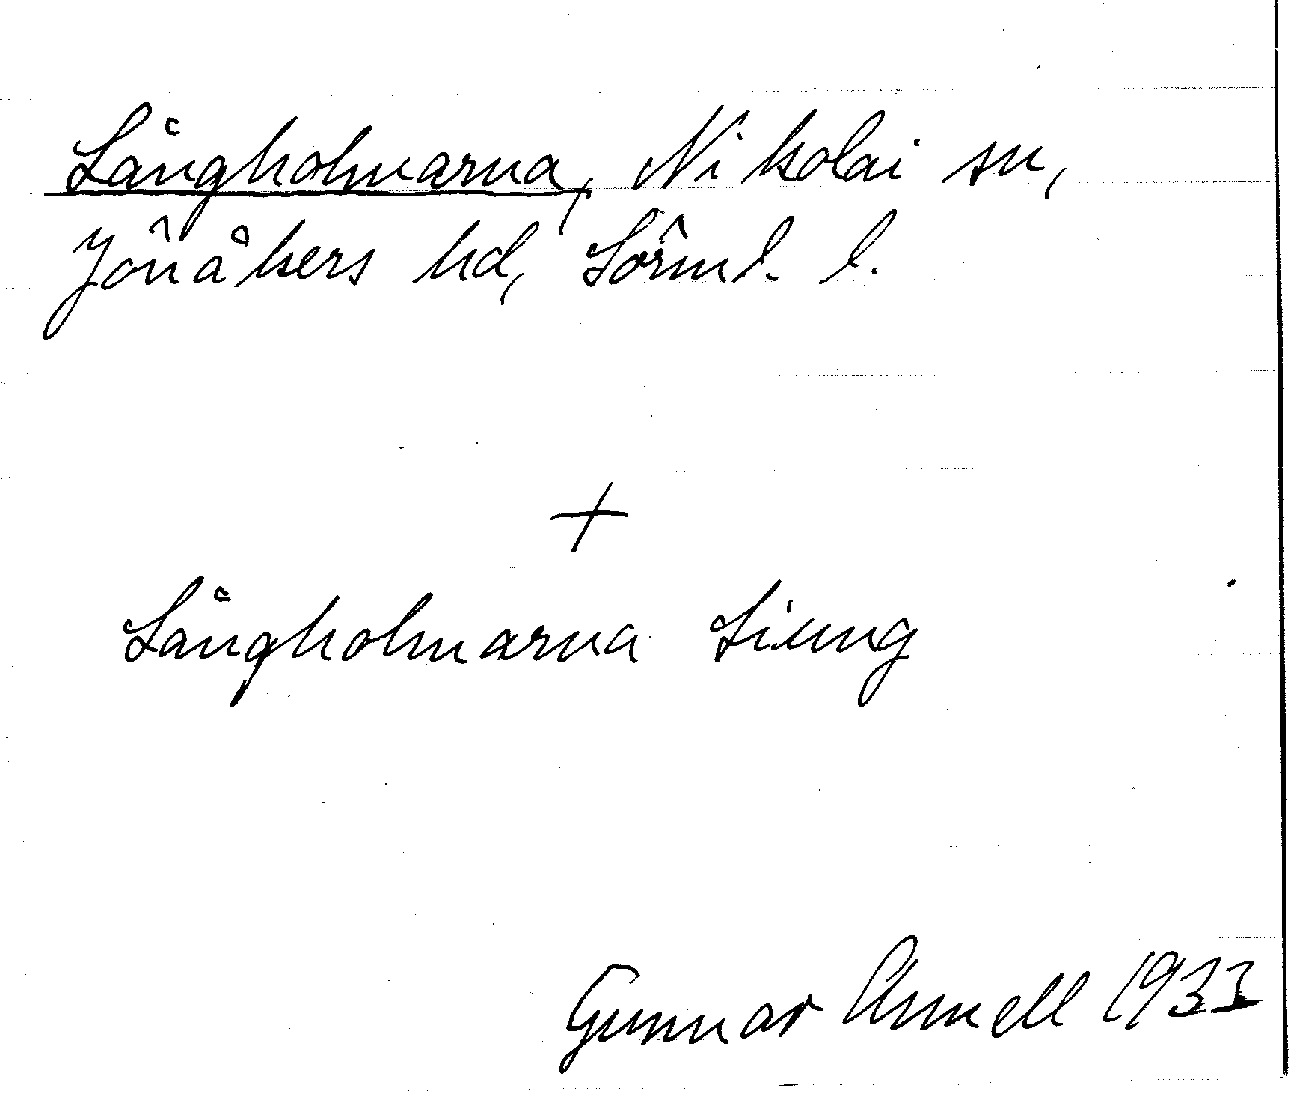 Långholmarna, Nikolai sn,
Jönåkers hd, Sörml. l.
+
Långholmarna
Gunnar Annell 1933